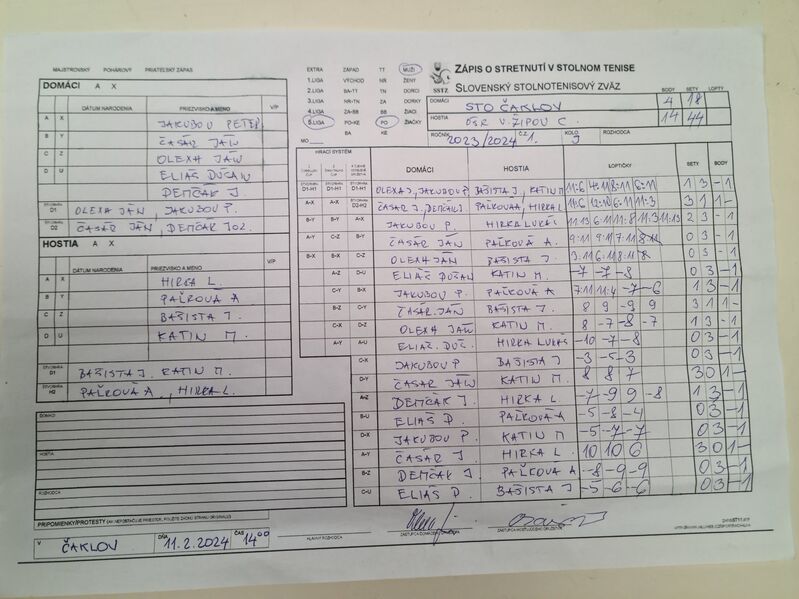 MAJSTROVSKÝ POHÁROVÝ PRIATEĽSKÝ ZÁPAS
DOMÁCI A X
DÁTUM NARODENIA PRIEZVISKO A MENO V/P
A X JAKUBOV PETER
B Y ČASÁR JÁN
C Z OLEXA JÁN
D U ELIÁŠ DUŠAN
DEMČÁK J.
ŠTVORHRA D1 OLEXA JÁN, JAKUBOV P.
D2 ČASÁR JÁN, DEMČÁK JOZ.
HOSTIA A X
DÁTUM NARODENIA PRIEZVISKO A MENO V/P
A X HIRKA L.
B Y PAĽKOVÁ A
C Z BAŠISTA J.
D U KATIN M.
ŠTVORHRA D1 BAŠISTA J, KATIN M.
H2 PAĽKOVÁ A, HIRKA L.
DOMÁCI
HOSTIA
ROZHODCA
PRIPOMIENKY/PROTESTY (AK NEPOSTAČUJE PRIESTOR, POUŽITE ZADNÚ STRANU ORIGINÁLU)
V ČAKLOV DŇA 11.2.2024 ČAS 14⁰⁰
EXTRA ZÁPAD TT MUŽI
1.LIGA VÝCHOD NR ŽENY
2.LIGA BA-TT TN DORCI
3.LIGA NR-TN ZA DORKY
4.LIGA ZA-BB BB ŽIACI
5.LIGA PO-KE PO ŽIAČKY
MO BA KE
SSTZ
ZÁPIS O STRETNUTÍ V STOLNOM TENISE
SLOVENSKÝ STOLNOTENISOVÝ ZVÄZ
BODY SETY LOPTY
DOMÁCI STO ČAKLOV 4 18
HOSTIA V. ŽIPOV C. 14 44
ROČNÍK 2023/2024 KOLO 9 ROZHODCA
HRACÍ SYSTÉM
DOMÁCI HOSTIA LOPTIČKY SETY BODY
D1-H1 D1-H1 OLEXA J, JAKUBOV P. BAŠISTA J, KATIN M. 11:6 4:11 8:11 6:11 1 3 -1
A-X A-X D2-H2 ČASÁR J, DEMČÁK J PAĽKOVÁ A, HIRKA L. 11:6 12:10 6:11 11:3 3 1 1-
B-Y B-Y A-X JAKUBOV P. HIRKA LUKÁŠ 11:13 6:11 11:8 11:3 11:13 2 3 -1
A-Y C-Z B-Y ČASÁR JÁN PAĽKOVÁ A. 9:11 9:11 7:11 0 3 -1
B-X B-X C-Z OLEXA JÁN BAŠISTA J. 3:11 6:11 8:11 0 3 -1
A-Z D-U ELIÁŠ DUŠAN KATIN M. -7 -7 -8 0 3 -1
C-Y B-X JAKUBOV P. PAĽKOVÁ A 7:11 11:4 -7 -6 1 3 -1
B-Z C-Y ČASÁR JÁN BAŠISTA J. 8 9 -9 9 3 1 1-
C-X D-Z OLEXA JÁN KATIN M. 8 -7 -8 -7 1 3 -1
A-Y A-U ELIÁŠ DUŠ. HIRKA LUKÁŠ -10 -7 -8 0 3 -1
C-X JAKUBOV P BAŠISTA J -3 -5 -3 0 3 -1
D-Y ČASÁR JÁN KATIN M. 8 8 7 3 0 1-
A-Z DEMČÁK J. HIRKA L. -7 -9 9 -8 1 3 -1
B-U ELIÁŠ D. PAĽKOVÁ A -5 -8 -4 0 3 -1
D-X JAKUBOV P. KATIN M -5 -7 -7 0 3 -1
A-Y ČASÁR J. HIRKA L. 10 10 6 3 0 1-
B-Z DEMČÁK J PAĽKOVÁ A -8 -9 -9 0 3 -1
C-U ELIÁŠ D. BAŠISTA J -5 -6 -6 0 3 -1
HLAVNÝ ROZHODCA ZÁSTUPCA DOMÁCEHO DRUŽSTVA ZÁSTUPCA HOSŤUJÚCEHO DRUŽSTVA